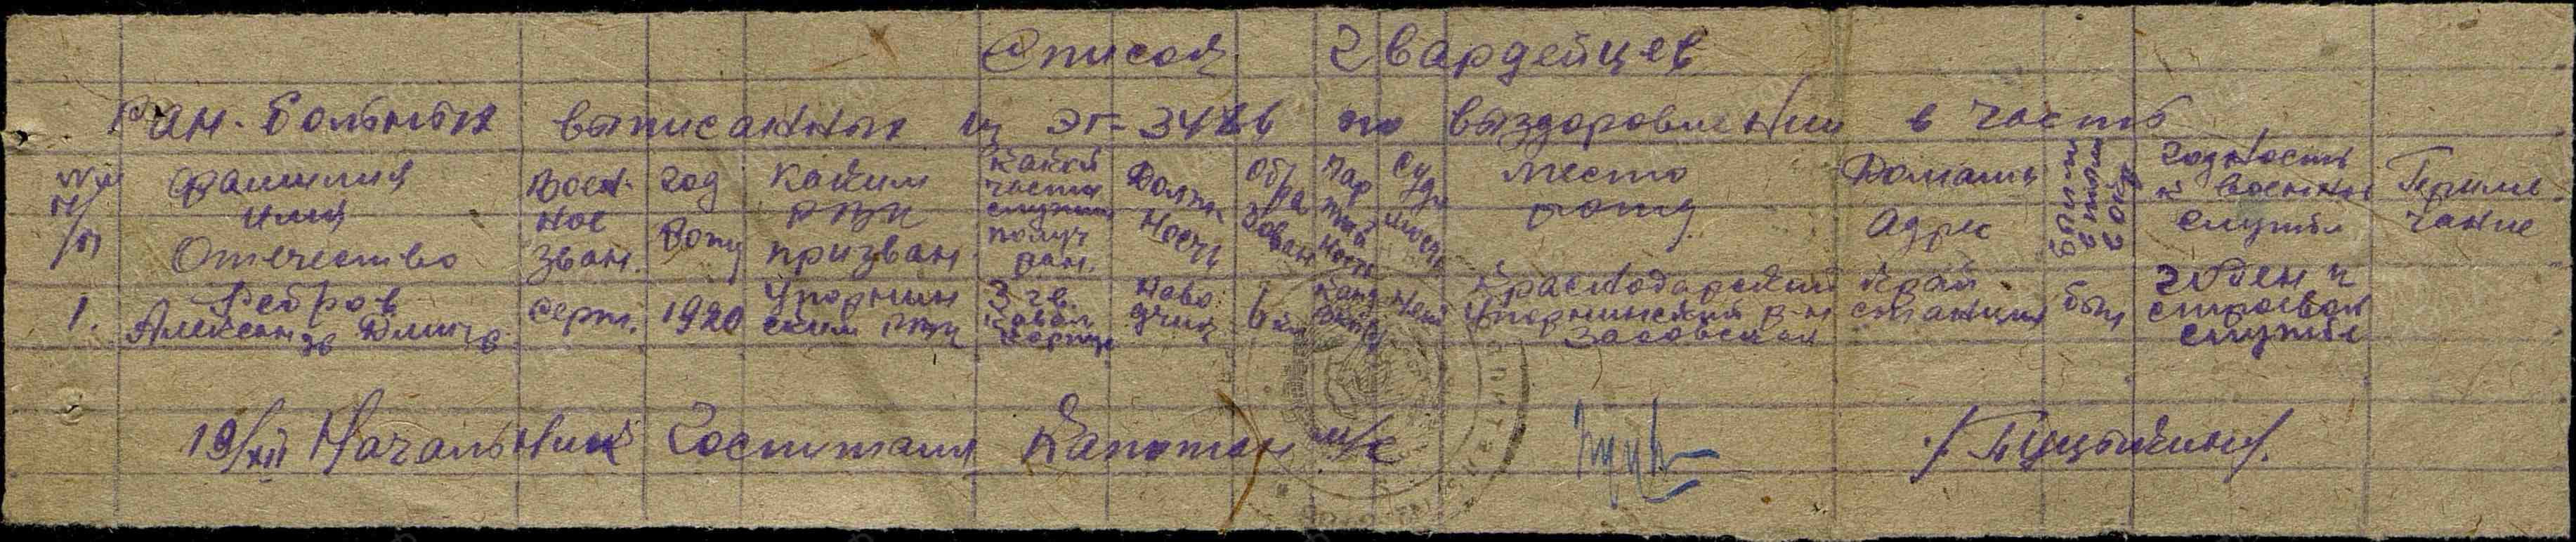 Список Гвардейцев
Ран. больных выписанных из ЭГ-3486 по выздоровлении в часть
№№ п/п Фамилия Имя Отечество
Воен-ное зван.
Год рожд
Каким РВК призван
Какой части служил получ ран.
Долж ность
Обра зован
Пар тий ность
Суди мость
Место рожд.
Домашн Адрес
Годность к военной службе
Приме чание
1. Ребров Александр Дмитр
серж. 1920
Упорнин ским РВК
3 гв. кавал. корпус
Наво дчик
6 кл
Канд
Краснодарский край
Упорнинский р-н станица
Засовская
был
годен к строевой службе
19/XII Начальник Госпиталя Капитан м/с